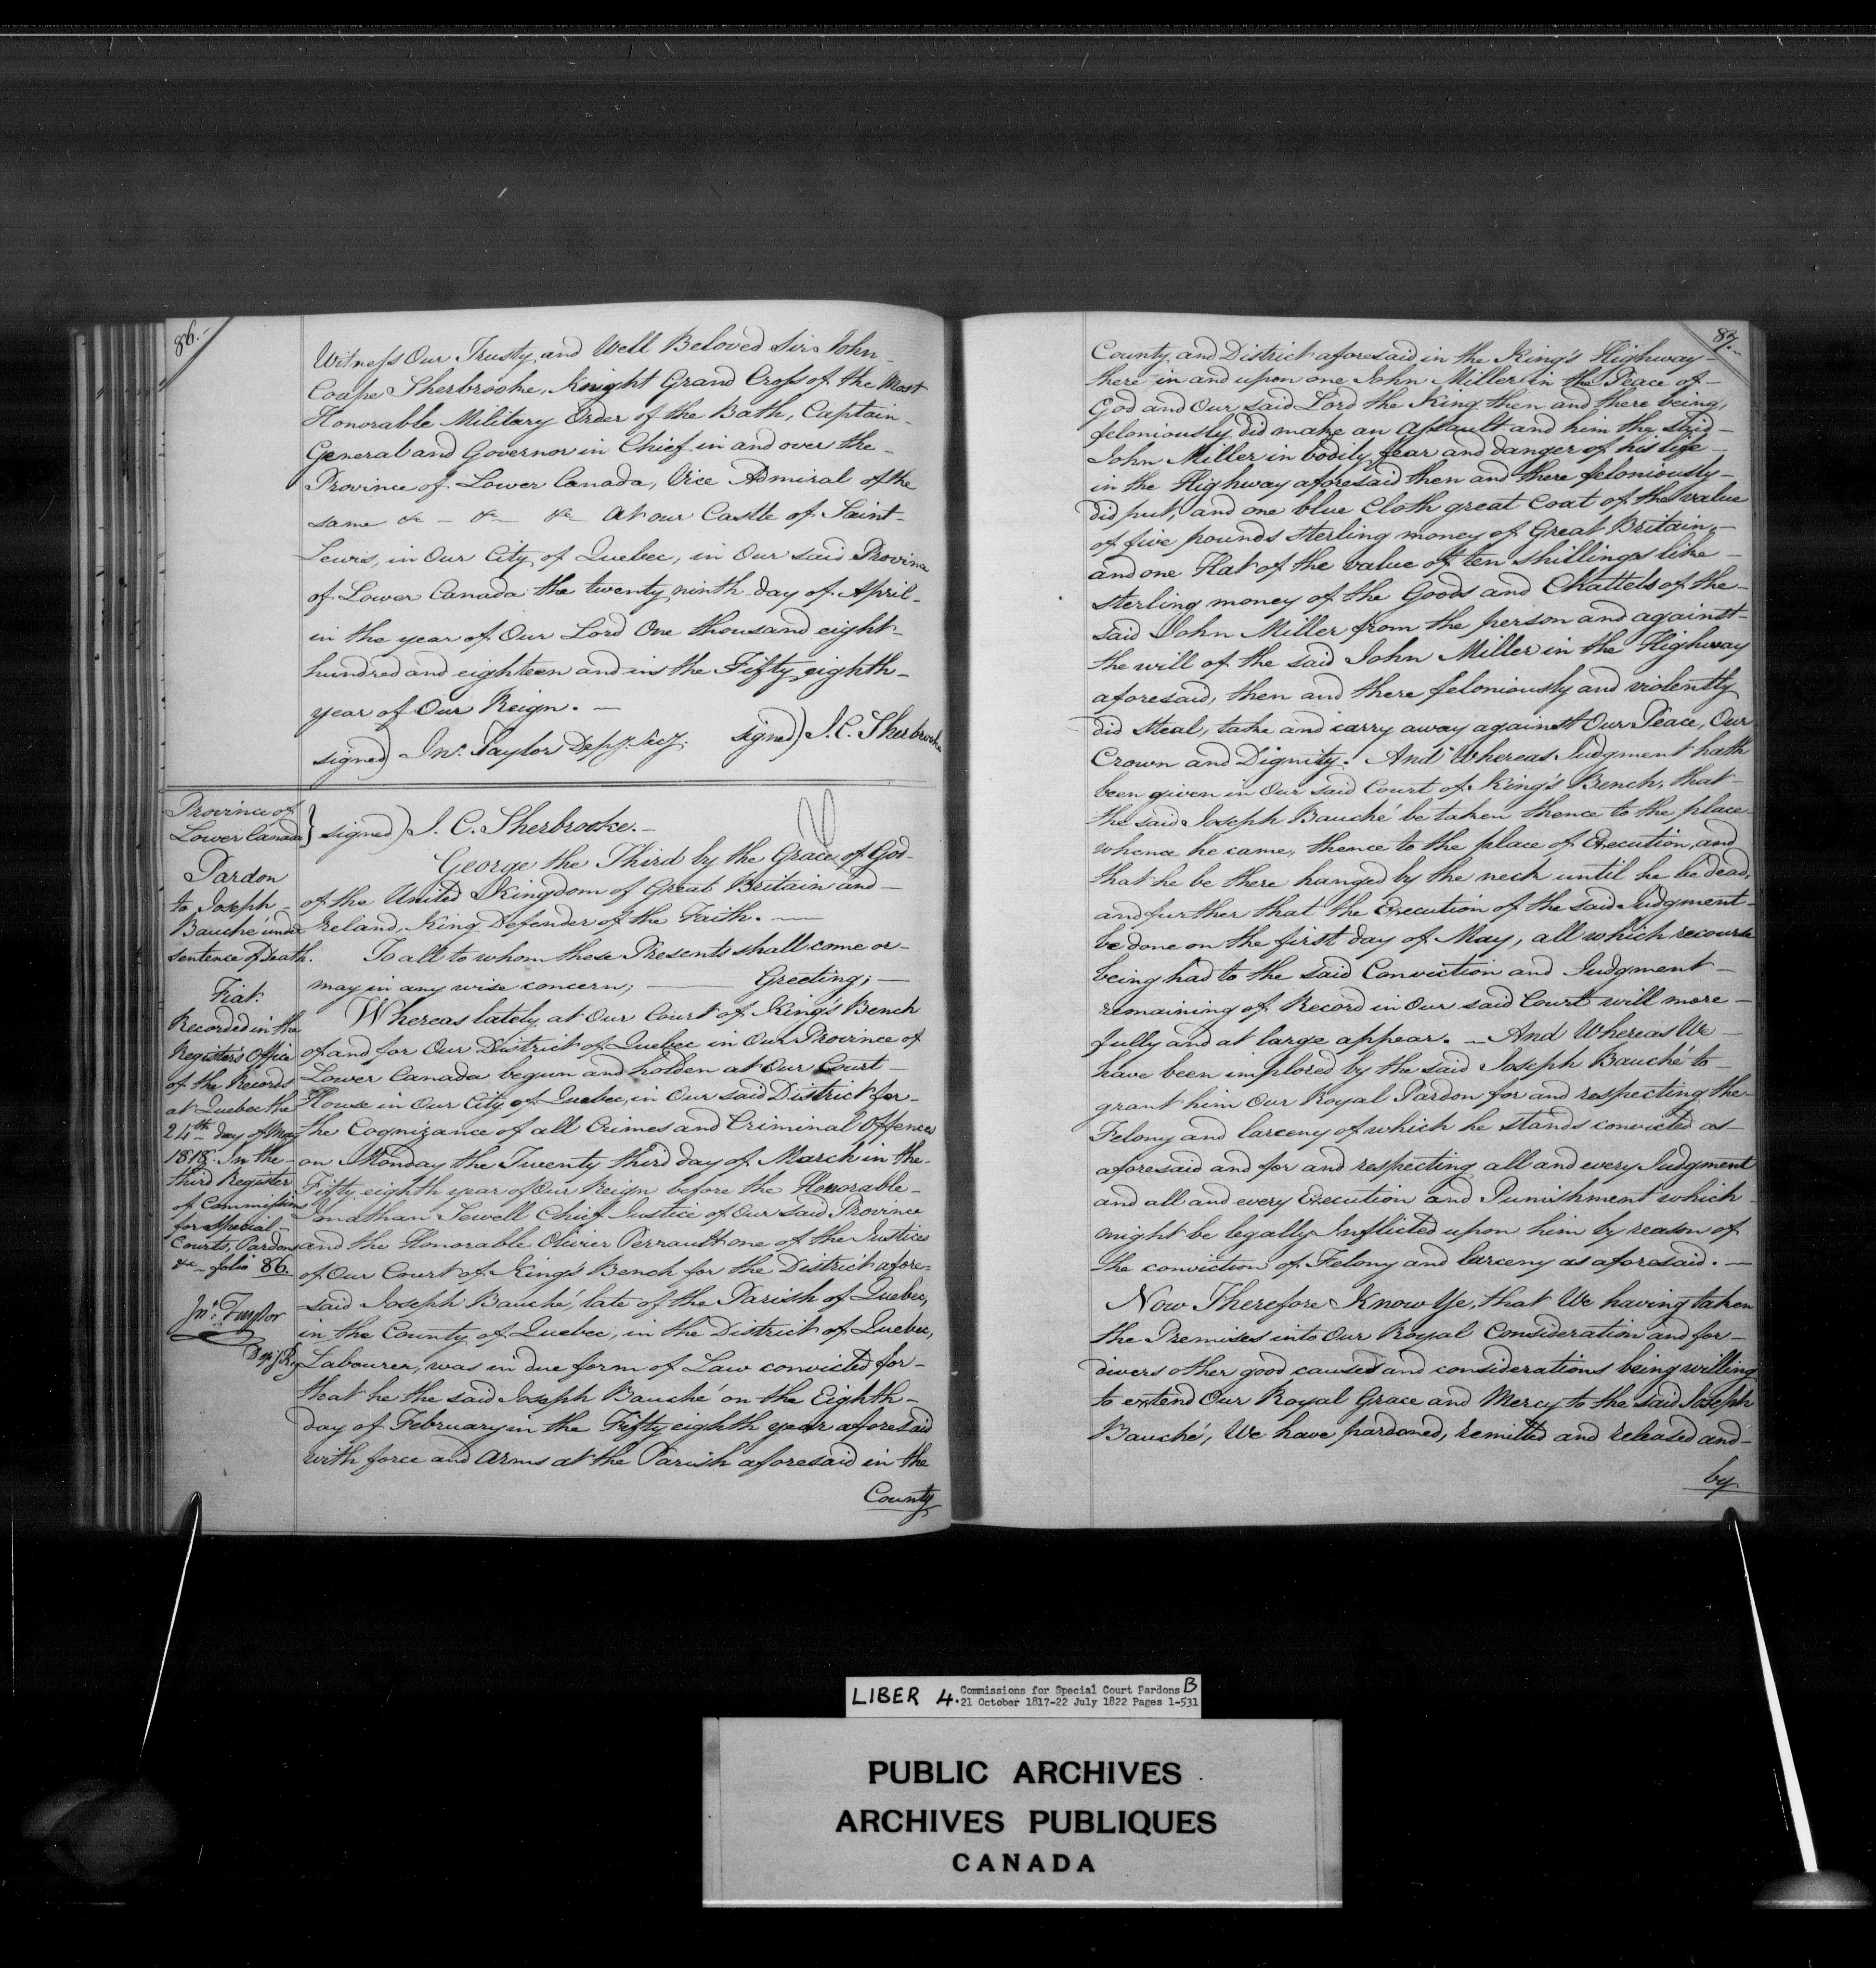 86.
Witness Our Trusty and Well Beloved Sir John
Coape Sherbrooke, Knight Grand Cross of the Most
Honorable Military Order of the Bath, Captain
General and Governor in Chief in and over the
Province of Lower Canada, Vice Admiral of the
same &c - &c - &c - At our Castle of Saint
Lewis, in Our City of Quebec, in Our said Province
of Lower Canada the twenty ninth day of April
in the year of Our Lord One thousand eight
hundred and eighteen and in the Fifty eighth
year of Our Reign. -
signed) Jno. Taylor Depy. Secy. signed) J. C. Sherbrooke
Province of
Lower Canada
Pardon
to Joseph
Bauché under
sentence of Death.
Fiat.
Recorded in the
Register's Office
of the Records
at Quebec the
24th day of May
1818. In the
third Register
of Commissions
for Special
Courts, Pardons
&c - folio 86.
Jno. Taylor
Depy. Reg
} signed) J. C. Sherbrooke. -
George the Third by the Grace of God
of the United Kingdom of Great Britain and
Ireland, King Defender of the Faith. -
To all to whom these Presents shall come or
may in any wise concern; - Greeting; -
Whereas lately at Our Court of King's Bench
of and for Our District of Quebec in Our Province of
Lower Canada begun and holden at Our Court
House in Our City of Quebec, in Our said District for
the Cognizance of all Crimes and Criminal Offences
on Monday the Twenty third day of March in the
Fifty eighth year of Our Reign before the Honorable
Jonathan Sewell Chief Justice of Our said Province
and the Honorable Olivier Perrault one of the Justices
of Our Court of King's Bench for the District afore=
said Joseph Bauché, late of the Parish of Quebec,
in the County of Quebec, in the District of Quebec,
Labourer, was in due form of Law convicted for
that he the said Joseph Bauché on the Eighth
day of February in the Fifty eighth year aforesaid
with force and arms at the Parish aforesaid in the
County
87.
County and District aforesaid in the King's Highway
there in and upon one John Miller in the Peace of
God and Our said Lord the King then and there being,
feloniously did make an Assault and him the said
John Miller in bodily fear and danger of his life
in the Highway aforesaid then and there feloniously
did put, and one blue Cloth great Coat of the value
of five pounds sterling money of Great Britain,
and one Hat of the value of ten shillings like
sterling money of the Goods and Chattels of the
said John Miller from the person and against
the will of the said John Miller in the Highway
aforesaid, then and there feloniously and violently
did steal, take and carry away against Our Peace, Our
Crown and Dignity. And Whereas Judgment hath
been given in Our said Court of King's Bench, that
the said Joseph Bauché be taken thence to the place
whence he came, thence to the place of Execution, and
that he be there hanged by the neck until he be dead,
and further that the Execution of the said Judgment
be done on the first day of May, all which recourse
being had to the said Conviction and Judgment
remaining of Record in Our said Court will more
fully and at large appear. - And Whereas We
have been implored by the said Joseph Bauché to
grant him Our Royal Pardon for and respecting the
Felony and larceny of which he stands convicted as
aforesaid and for and respecting all and every Judgment
and all and every Execution and Punishment which
might be legally Inflicted upon him by reason of
the conviction of Felony and larceny as aforesaid. -
Now Therefore Know Ye, that We having taken
the Premises into Our Royal Consideration and for
divers other good causes and considerations being willing
to extend Our Royal Grace and Mercy to the said Joseph
Bauché, We have pardoned, remitted and released and
by
LIBER 4. Commissions for Special Court Pardons B
21 October 1817-22 July 1822 Pages 1-531
PUBLIC ARCHIVES
ARCHIVES PUBLIQUES
CANADA